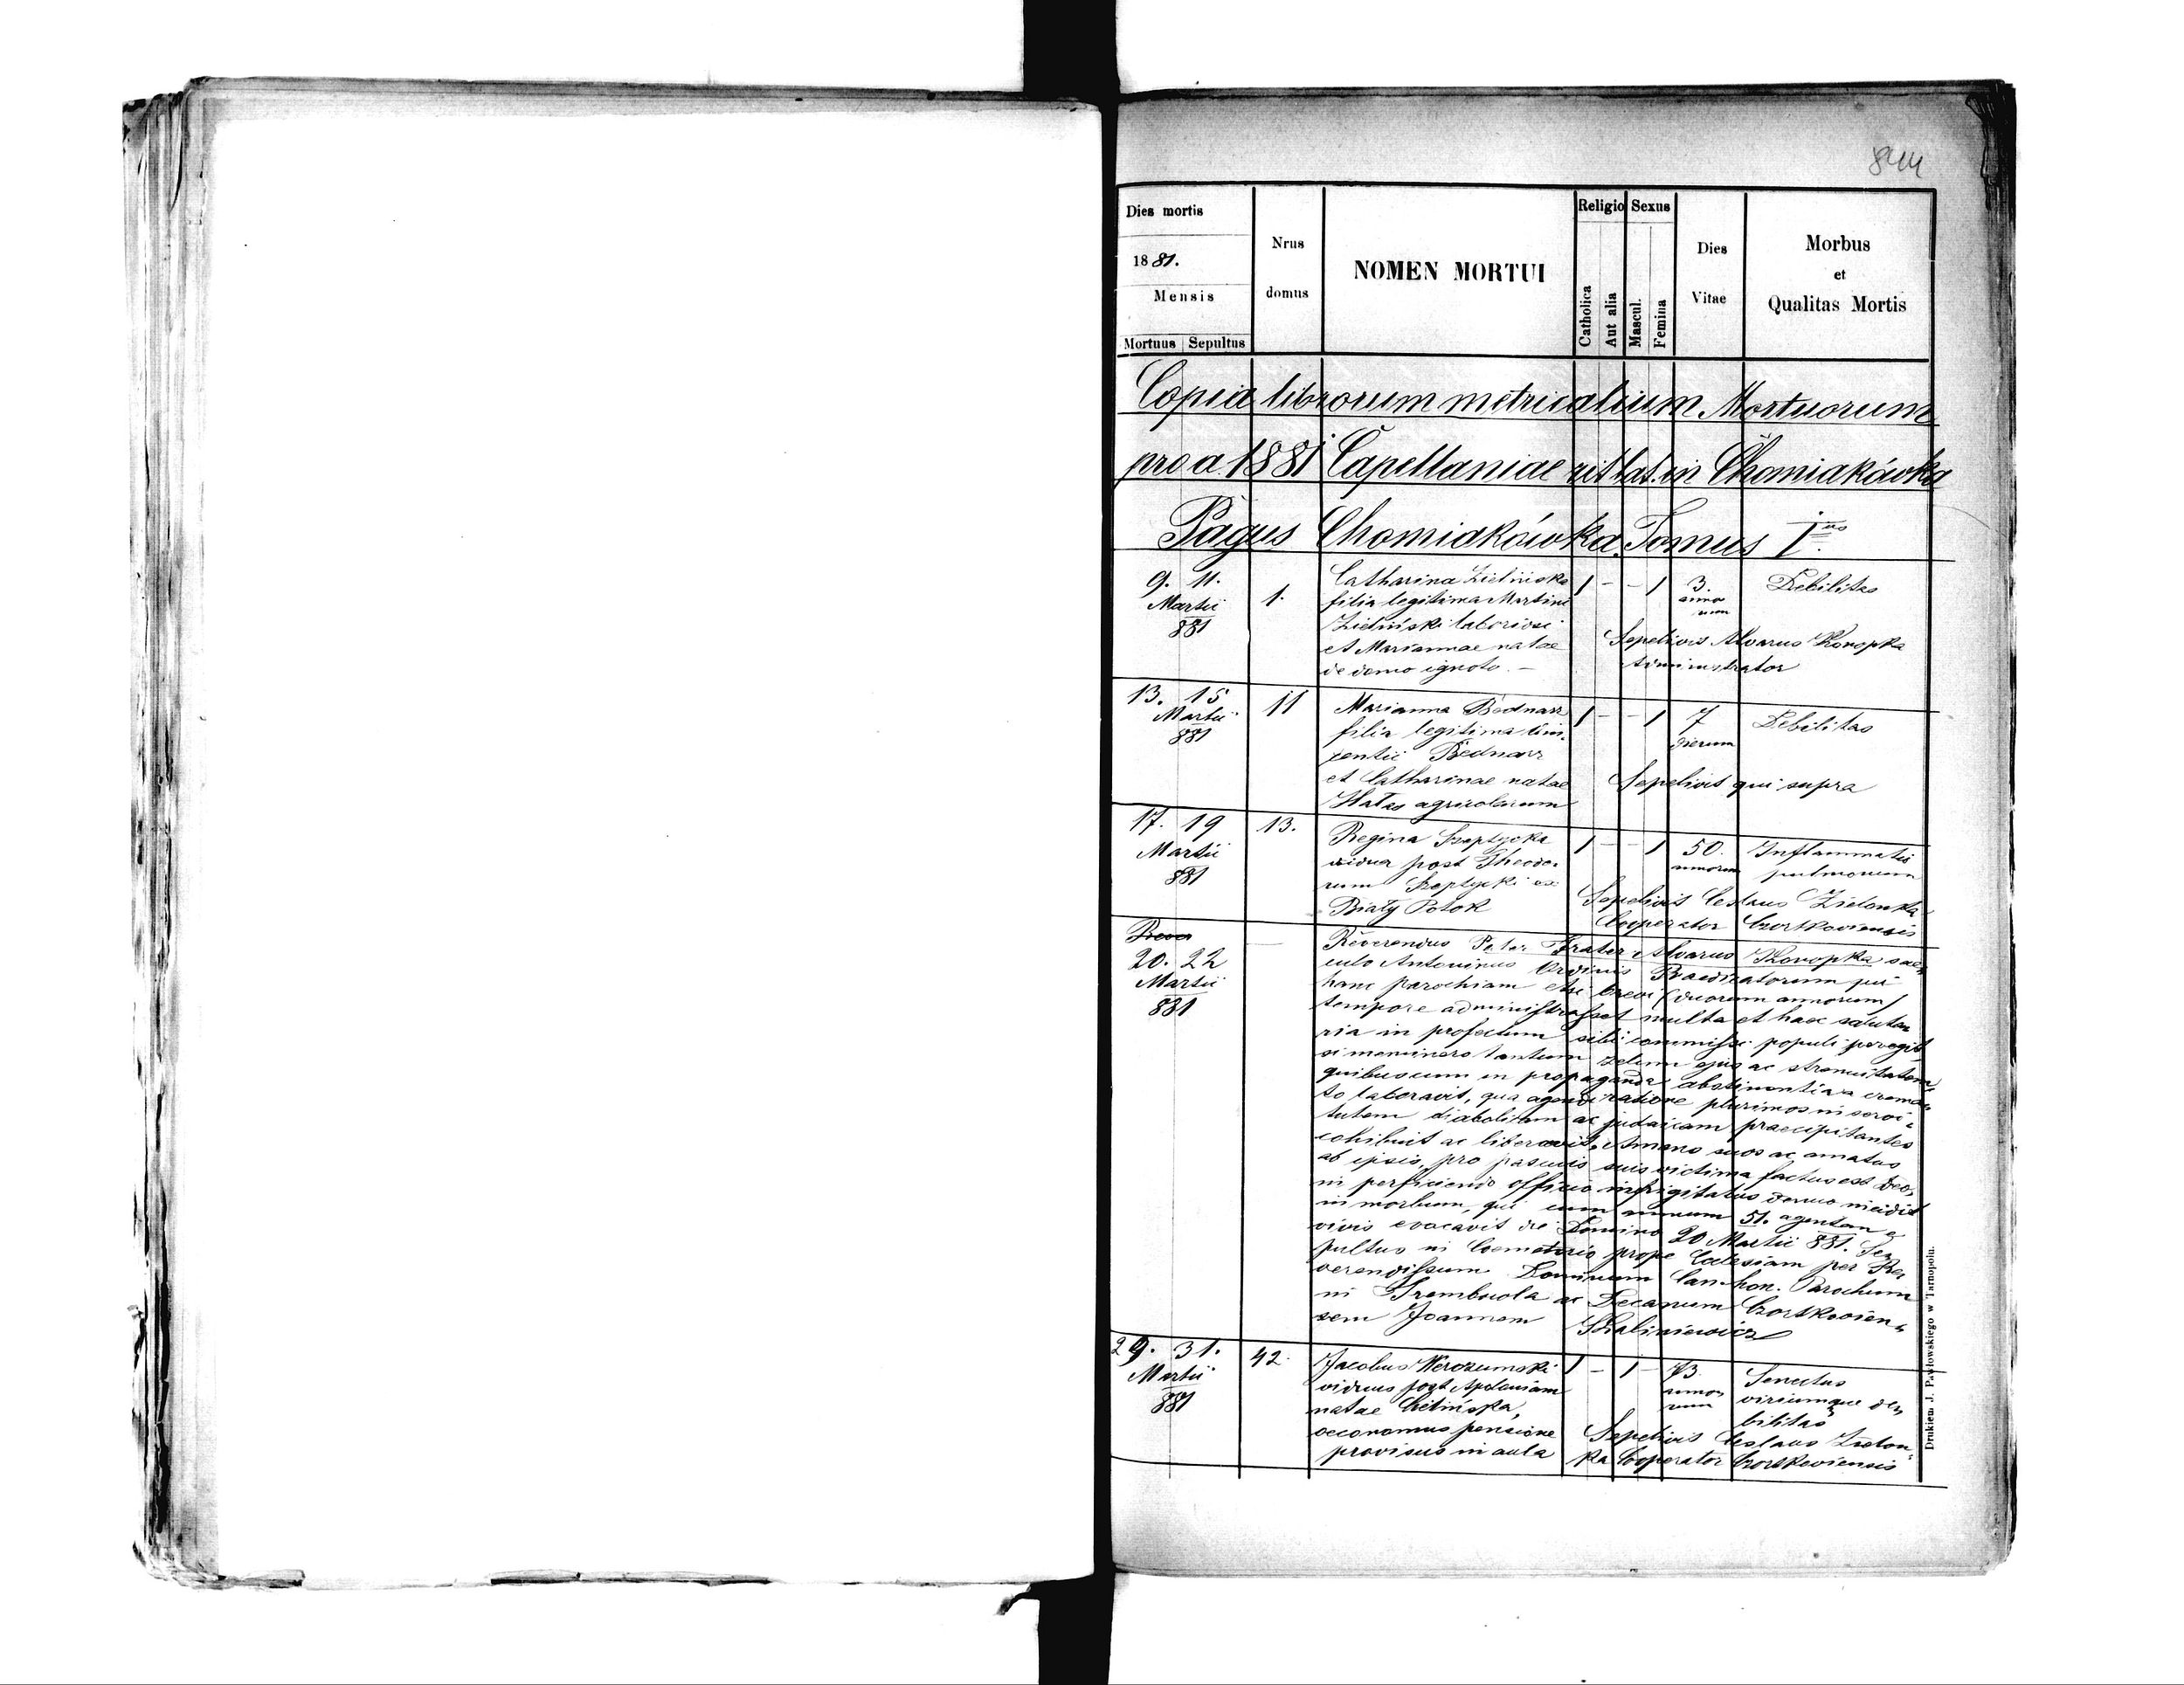 844
Dies mortis
1881.
Mensis
Mortuus Sepultus
Nrus
domus
NOMEN MORTUI
Religio
Catholica
Aut alia
Sexus
Mascul.
Femina
Dies
Vitae
Morbus
et
Qualitas Mortis
Copia librorum metricalium Mortuorum
pro a. 1881 Capellaniae rit lat. in Chomiakówka
Pagus Chomiakówka Tomus I us
9. 11.
Martii
881
1.
Catharina Zielińska
filia legitima Martini
Zieliński laboriosi
et Mariannae natae
de domo ignoto. –
1 – – 1
3.
anno
rum
Debilitas
Sepelivit Alvarus Konopka
Administrator
13. 15
Martii
881
11
Marianna Bednarz
filia legitima
Bednarz
et Catharinae natae
agricolarum
1 – – 1
7
dierum
Debilitas
Sepelivit qui supra
17. 19
Martii
881
13.
Regina Szeptycka
vidua post Theodo-
rum Szeptycki ex
Biały Potok
1 – – 1
50.
annorum
Inflammatio
pulmonum
Sepelivit Ceslaus Zielonka
Cooperator Czortkoviensis
20. 22
Martii
881
—
Reverendus Pater Frater Alvarus Konopka sae-
culo Antoninus Ordinis Praedicatorum qui
hanc parochiam etsi brevi (duorum annorum)
tempore administrasset multa et haec saluta
ria in profectum sibi commissi populi peregit
si meminero tantum zelum ejus ac strenuitatem
quibuscum in propaganda abstinentia a crema-
to laboravit, qua agendi ratione plurimos in servi-
tutem diabolicam ac judaicam praecipitantes
cohibuit ac liberavit. Amans suos ac amatus
ab ipsis, pro suis victima factus est Deo,
in perficiendo officio infrigitatus denuo incidit
in morbum, qui eum annum 51. agentem e
vivis evocavit die Domino 20 Martii 881. Se-
pultus in Coemeterio prope Ecclesiam per Re-
verendissum Dominum Can. hon. Parochum
in Trembowla ac Decanum Czortkovien-
sem Joannem Kaliniewicz
29. 31.
Martii
881
42.
Jacobus
viduus post Apoloniam
natae
oeconomus pensione
provisus in aula
1 – 1 –
73
anno
rum
Senectus
viriumque de-
bilitas
Sepelivit Ceslaus Zielon-
ka Cooperator Czortkoviensis
Drukiem J. Pawłowskiego w Tarnopolu.